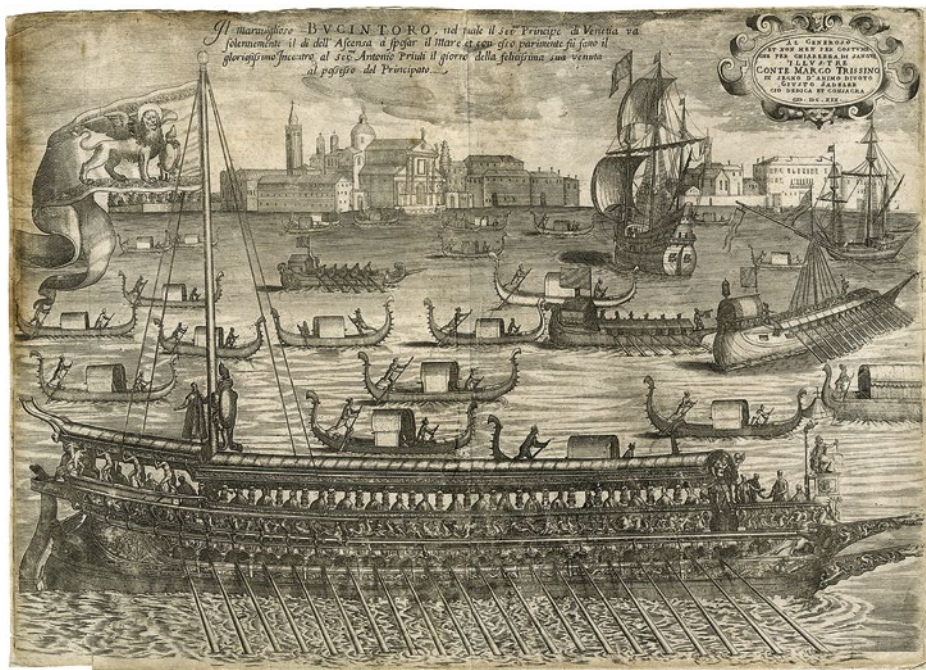 Il maraviglioso BVCINTORO, nel quale il Ser.º Principe di Venetia va
solennemente il di dell' Ascensa à sposar il Mare et con esso parimente fù fatto il
gloriosissimo Incontro al Ser.º Antonio Priuli il giorno della felicissima sua venuta
al possesso del Principato
AL GENEROSO
ET NON MEN PER COSTVMI
CHE PER CHIAREZZA DI SANGVE
ILLVSTRE
CONTE MARCO TRISSINO
IN SEGNO D'ANIMO DIVOTO
GIVSTO SADELER
CIO DEDICA ET CONSACRA